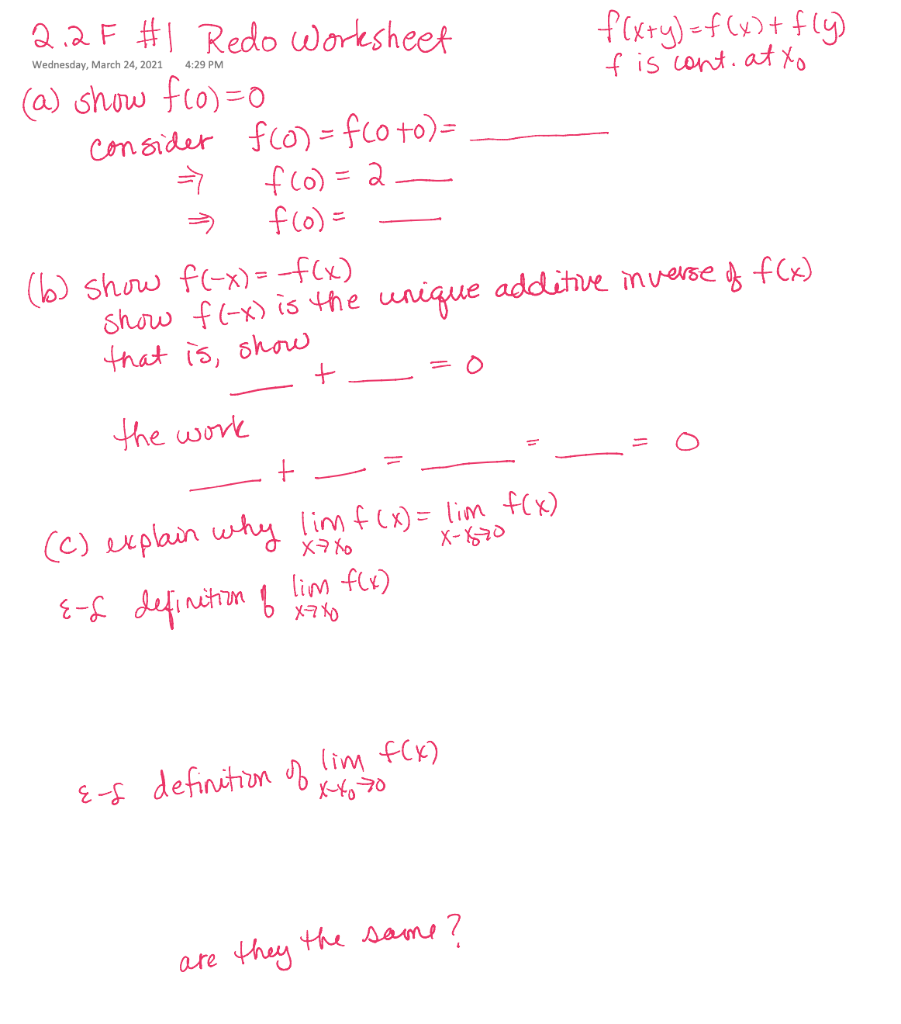 2.2 F #1 Redo Worksheet
Wednesday, March 24, 2021 4:29 PM
f(x+y)=f(x)+f(y)
f is cont. at x₀
(a) show f(0)=0
consider f(0) = f(0+0)= ______
⇒ f(0) = 2 ___
⇒ f(0) = ___
(b) show f(-x) = -f(x)
show f(-x) is the unique additive inverse of f(x)
that is, show
___ + ___ = 0
the work
___ + ___ = ___ = ___ = 0
(c) explain why lim f(x) = lim f(x)
x→x₀ x-x₀→0
ε-δ definition of lim f(x)
x→x₀
ε-δ definition of lim f(x)
x-x₀→0
are they the same?